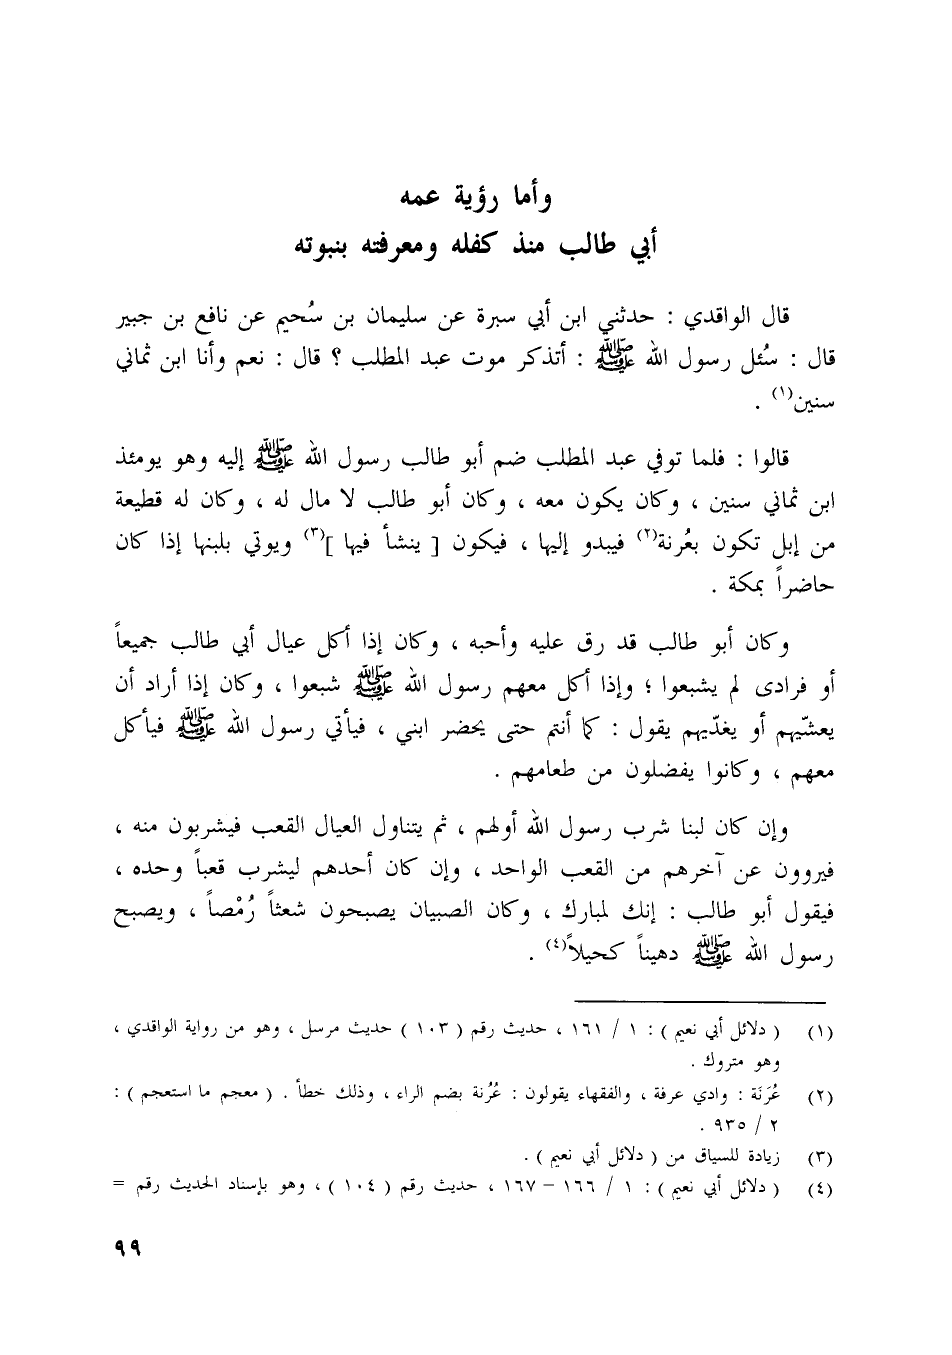 وأما رؤية عمه
أبي طالب منذ كفله ومعرفته بنبوته
قال الواقدي : حدثني ابن أبي سبرة عن سليمان بن سُحيم عن نافع بن جبير
قال : سُئل رسول الله ﷺ : أتذكر موت عبد المطلب ؟ قال : نعم وأنا ابن ثماني
سنين(١) .
قالوا : فلما توفي عبد المطلب ضم أبو طالب رسول الله ﷺ إليه وهو يومئذ
ابن ثماني سنين ، وكان يكون معه ، وكان أبو طالب لا مال له ، وكان له قطيعة
من إبل تكون بعُرنة(٢) فيبدو إليها ، فيكون [ ينشأ فيها ](٣) ويوتي بلبنها إذا كان
حاضراً بمكة .
وكان أبو طالب قد رق عليه وأحبه ، وكان إذا أكل عيال أبي طالب جميعاً
أو فرادى لم يشبعوا ؛ وإذا أكل معهم رسول الله ﷺ شبعوا ، وكان إذا أراد أن
يعشّيهم أو يغدّيهم يقول : كما أنتم حتى يحضر ابني ، فيأتي رسول الله ﷺ فيأكل
معهم ، وكانوا يفضلون من طعامهم .
وإن كان لبنا شرب رسول الله أولهم ، ثم يتناول العيال القعب فيشربون منه ،
فيروون عن آخرهم من القعب الواحد ، وإن كان أحدهم ليشرب قعباً وحده ،
فيقول أبو طالب : إنك لمبارك ، وكان الصبيان يصبحون شعثاً رُمْصاً ، ويصبح
رسول الله ﷺ دهيناً كحيلاً(٤) .
(١) ( دلائل أبي نعيم ) : ١ / ١٦١ ، حديث رقم ( ١٠٣ ) حديث مرسل ، وهو من رواية الواقدي ،
وهو متروك .
(٢) عُرَنَة : وادي عرفة ، والفقهاء يقولون : عُرُنة بضم الراء ، وذلك خطأ . ( معجم ما استعجم ) :
٢ / ٩٣٥ .
(٣) زيادة للسياق من ( دلائل أبي نعيم ) .
(٤) ( دلائل أبي نعيم ) : ١ / ١٦٦ – ١٦٧ ، حديث رقم ( ١٠٤ ) ، وهو بإسناد الحديث رقم =
٩٩